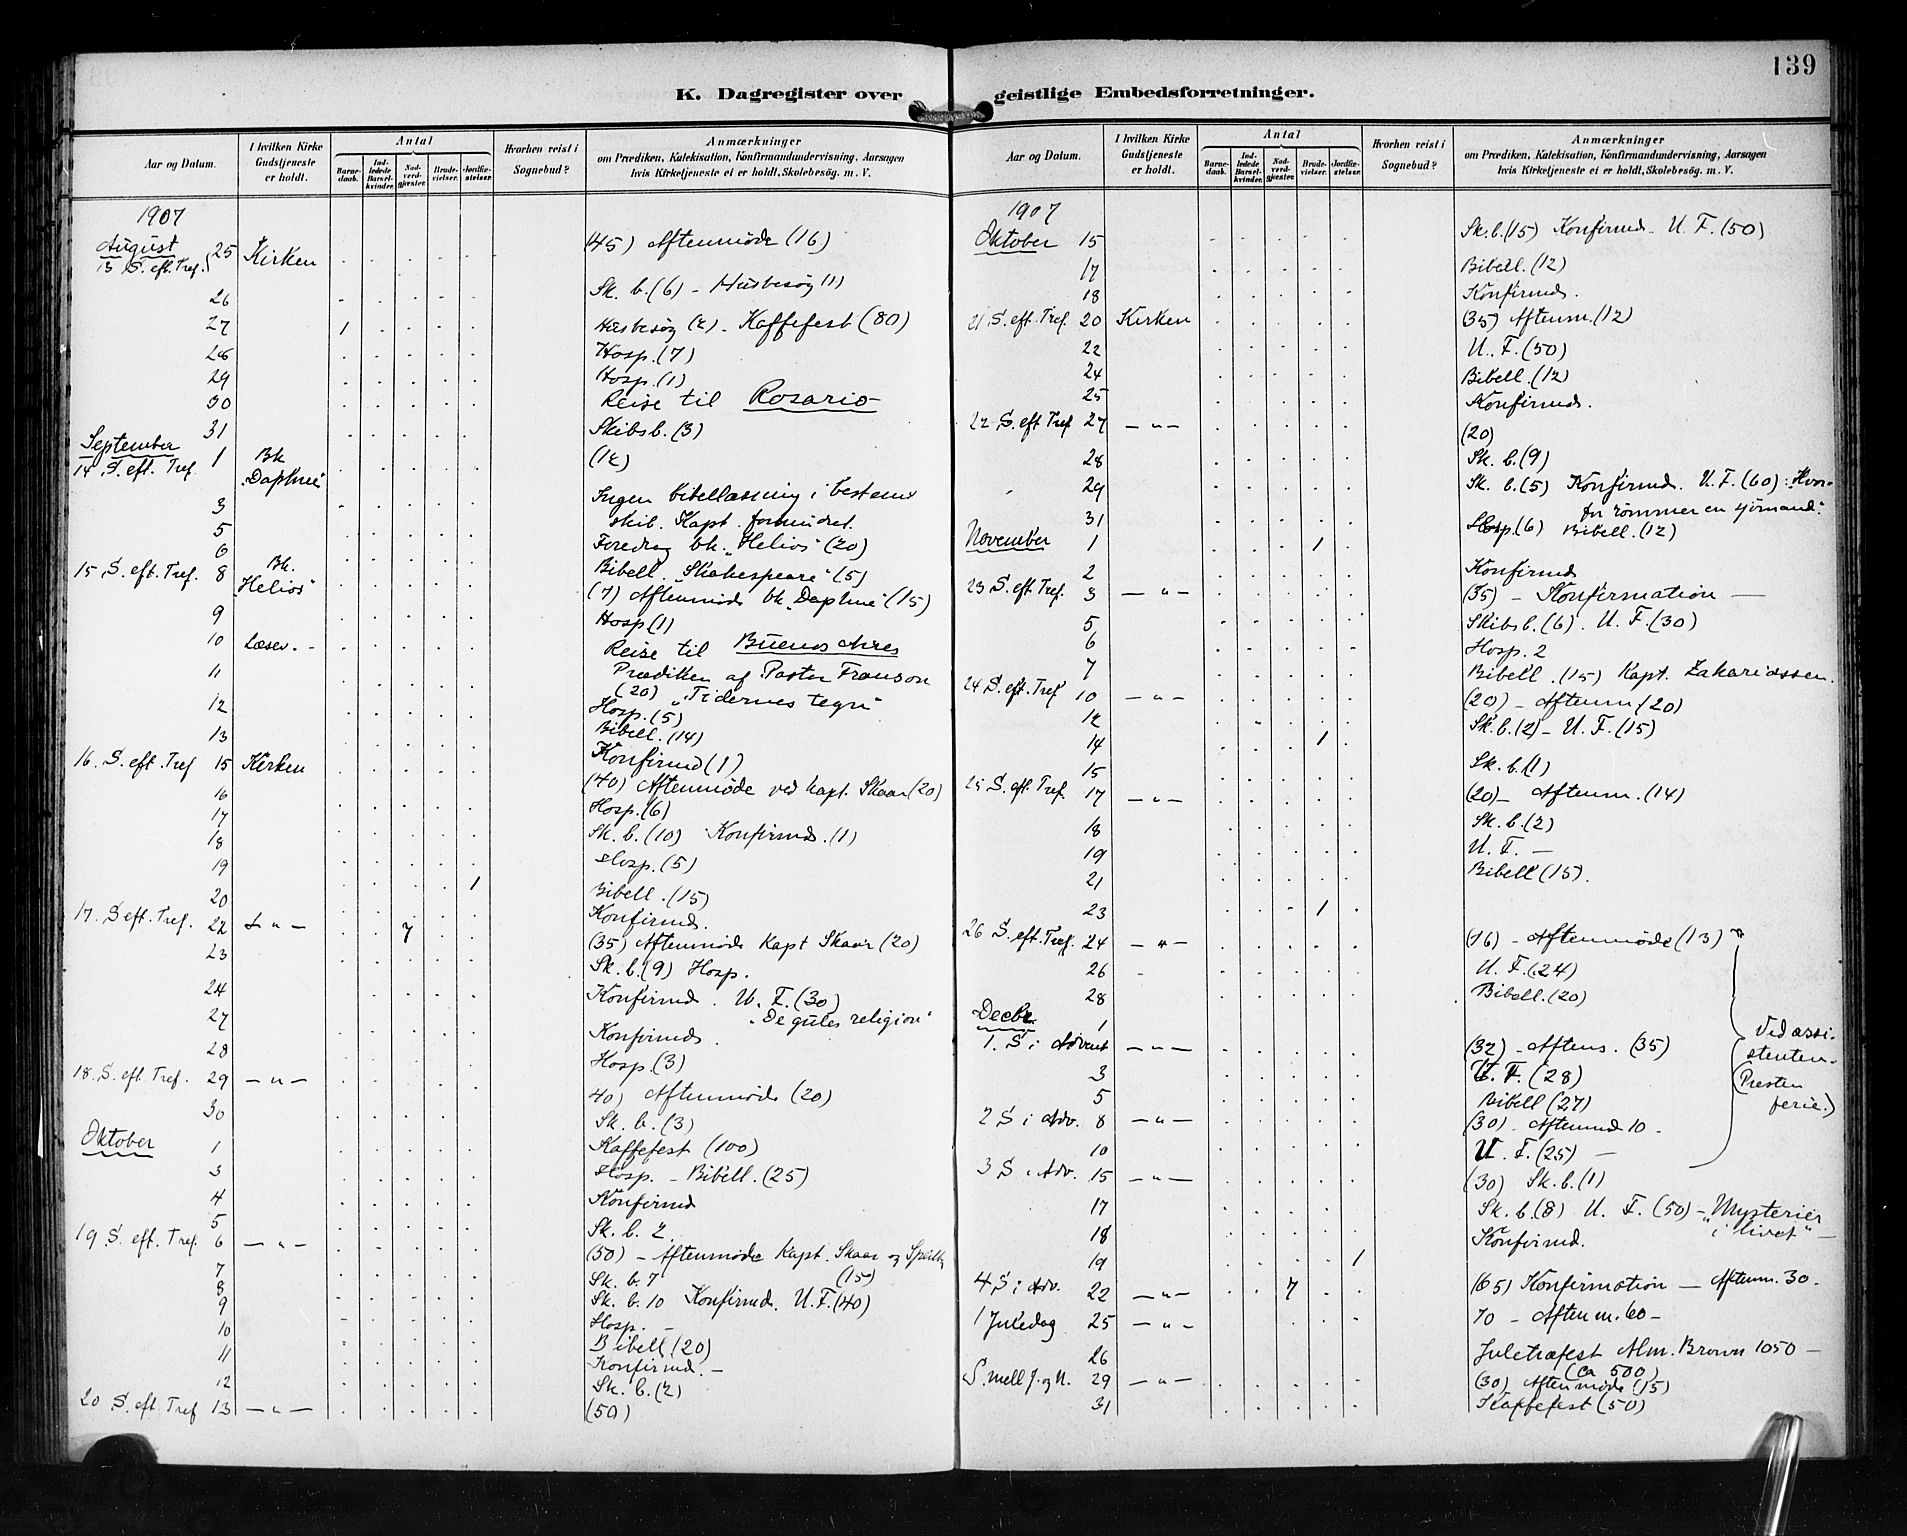 139
K. Dagregister over geistlige Embedsforretninger.
Aar og Datum. | I hvilken Kirke Gudstjeneste er holdt. | Antal | Barnedaab. | Indledede Barselkvinder. | Nadverdgjester. | Brudevielser. | Jordfæstelser. | Hvorhen reist i Sognebud? | Anmærkninger om Prædiken, Katekisation, Konfirmandundervisning, Aarsagen hvis Kirketjeneste ei er holdt, Skolebesøg. m. V.
1907
August 25 Kirken (45) Aftenmøde (16)
13 S. eft. Tref.
26 Sk. b. (6) - Husbesøg (1)
27 1 Husbesøg (2) - Kaffefest (80)
28 Hosp. (7)
29 Hosp. (1)
30 Reise til Rosario
31 Skibsb. (3)
September
14 S. eft. Tref. 1 Bk „Daphne“ (12)
3 Ingen bibellæsning i bestemt
skib. Kapt. forhindret.
5 Foredrag bk. „Helios“ (20)
6 Bibell. „Shakespeare“ (5)
15 S. eft. Tref. 8 Bk. „Helios“ (7) Aftenmøde bk. „Daphne“ (15)
9 Hosp (1)
10 Læsev. Reise til Buenos Aires
11 Prædiken af Pastor Franson
(20) „Tidernes tegn“
12 Hosp. (5)
13 Bibell. (14)
Konfirmd (1)
16. S. eft. Tref 15 Kirken (40) Aftenmøde ved Kapt. Skaar (20)
16 Hosp. (6)
17 Sk. b. (10) Konfirmd. (1)
18 Hosp. (5)
19 1 Bibell. (15)
20 Konfirmd.
17. S eft. Tref. 22 — „ — 7 (35) Aftenmøde Kapt Skaar (20)
23 Sk. b. (9) Hosp.
24 Konfirmd. U. F. (30)
„De gules religion“
27 Konfirmd.
28 Hosp. (3)
18. S. eft. Tref. 29 — „ — 40) Aftenmøde (20)
30 Sk. b. (3)
Oktober 1 Kaffefest (100)
3 Hosp. - Bibell. (25)
4 Konfirmd
5 Sk. b. 2
19 S. eft. Tref. 6 — „ — (50) - Aftenmøde Kapt. Skaar og
(15)
7 Sk. b. 7
8 Sk. b. 10 Konfirmd. U. F. (40)
9 Hosp. —
10 Bibell (20)
11 Konfirmd. —
12 Sk. b. (2)
20 S. eft. Tref 13 — „ — (50)
Aar og Datum. | I hvilken Kirke Gudstjeneste er holdt. | Antal | Barnedaab. | Indledede Barselkvinder. | Nadverdgjester. | Brudevielser. | Jordfæstelser. | Hvorhen reist i Sognebud? | Anmærkninger om Prædiken, Katekisation, Konfirmandundervisning, Aarsagen hvis Kirketjeneste ei er holdt, Skolebesøg. m. V.
1907
Oktober 15 Sk. b. (15) Konfirmd. U. F. (50)
17 Bibell. (12)
18 Konfirmd.
21 S. eft. Tref. 20 Kirken (35) Aftenm. (12)
22 U. F. (50)
24 Bibell. (12)
25 Konfirmd.
22 S. eft. Tref 27 — „ — (20)
28 Sk. b. (9)
29 Sk. b. (5) Konfirmd. U. F. (60): „Hvor-
for rømmer en sjømand“.
31 Hosp. (6) Bibell. (12)
November 1 1
2 Konfirmd
23 S. eft Tref. 3 — „ — (35) - Konfirmation —
5 Skibsb. (6). U. F. (30)
6 Hosp. 2
7 Bibell. (15) Kapt. Zakariassen.
24 S. eft. Tref 10 — „ — (20) - Aftenm (20)
12 Sk. b. (2) - U. F. (15)
14 1
15 Sk. b. (1)
25 S. eft. Tref. 17 — „ — (20) - Aftenm. (14)
18 Sk. b. (2)
19 U. F. —
21 Bibell (15).
23 1
26 S. eft. Tref. 24 — „ — (16) - Aftenmøde (13)
26 U. F. (24)
28 Bibell. (20)
Decbr. 1
1. S i Advent — „ — (32) - Aftens. (35)
3 U. F. (28)
5 Bibell (27)
2 S i Adv. 8 — „ — (30) - Aftenmd 10 -
10 U. F. (25) —
Ved assi-
stenten.
(Presten
ferie.)
3 S i Adv. 15 — „ — (30) Sk. b. (1)
17 Sk. b. (8) U. F. (50) - „Mysterier
i livet“ —
18 Konfirmd.
19 1
4 S i Adv. 22 — „ — 7 (65) Konfirmation — Aftenm. 30.
1 Juledag 25 — „ — 70 - Aftenm. 60 -
26 Juletræfest Alm. Brown 1050 —
(ca 500)
S. mell J. og N. 29 — „ — (30) Aftenmøde (15)
31 Kaffefest (50)